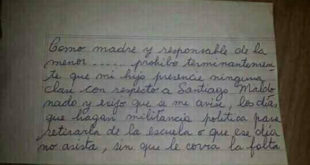 Como madre y responsable de la
menor ..... prohibo terminantemen-
te que mi hijo presencie ninguna
clase con respecto a Santiago Maldo-
nado y exijo que se me avise, los días
que hagan militancia política para
retirarla de la escuela o que ese día
no asista, sin que le corra la falta